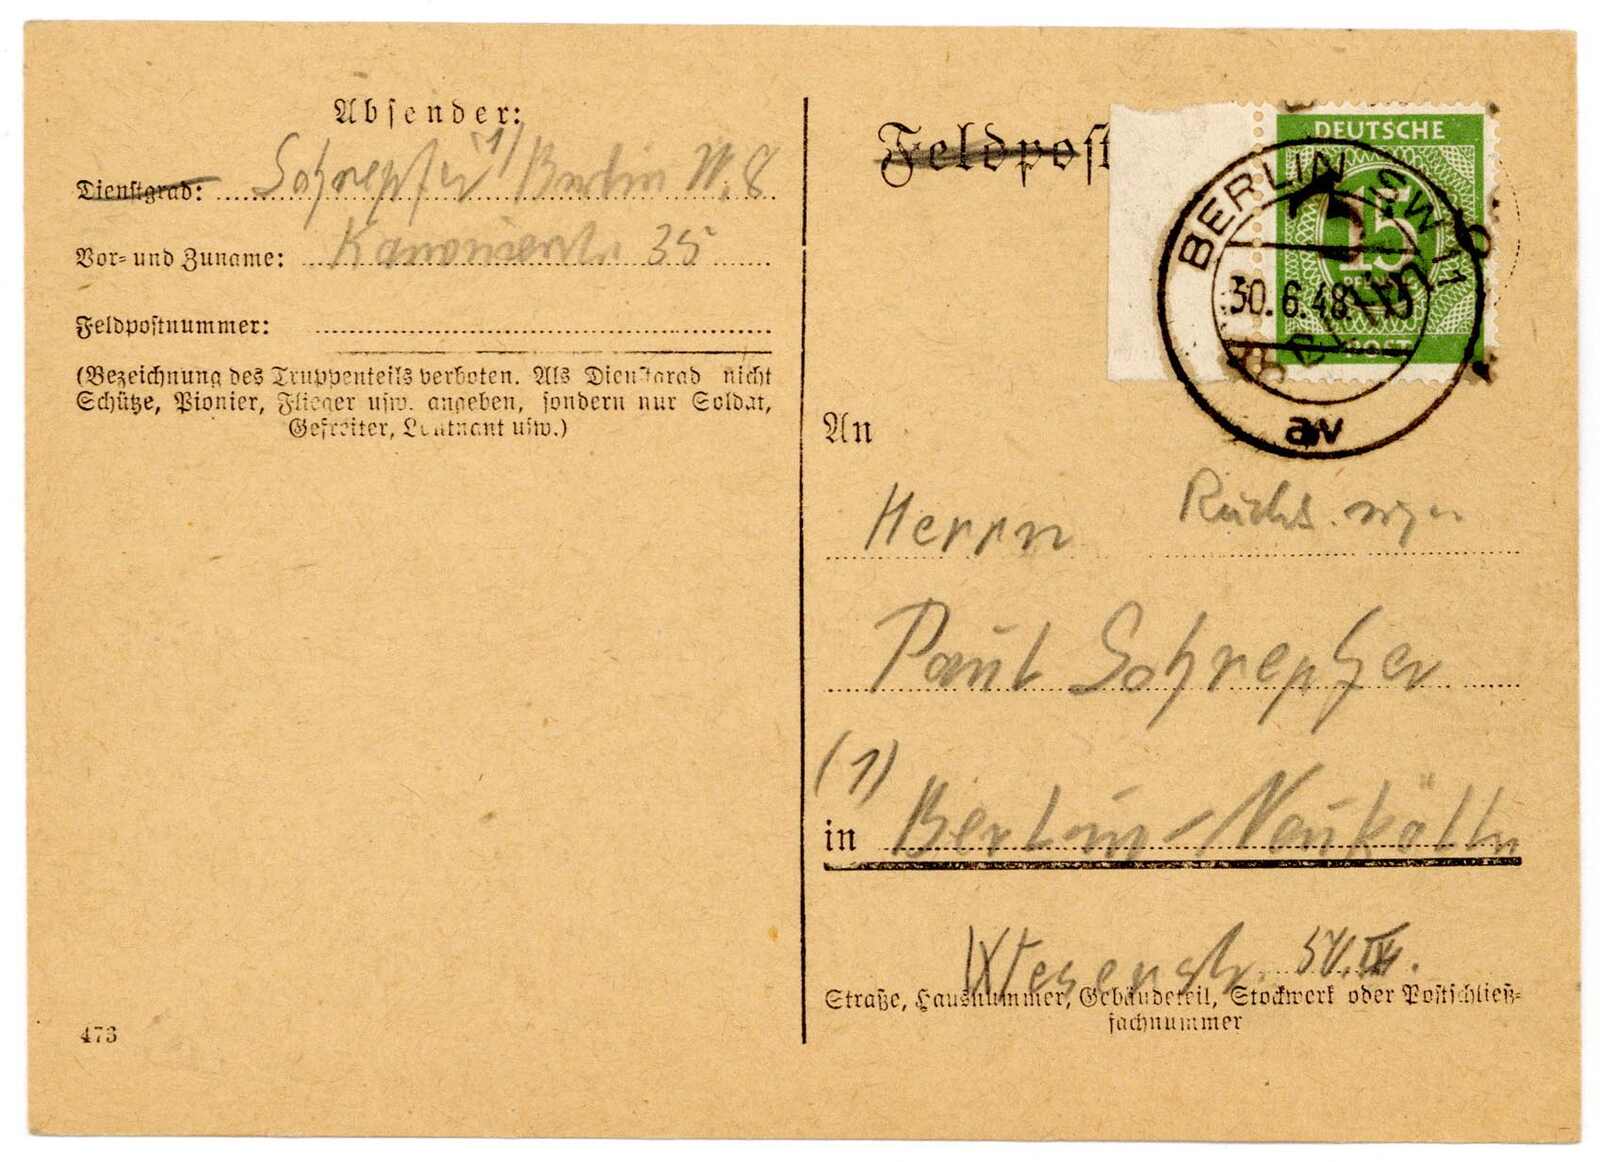 Absender:
Schrepfer 1/ Berlin W. 8
Dienstgrad:
Vor- und Zuname: Kanonierstr. 35
Feldpostnummer:
(Bezeichnung des Truppenteils verboten. Als Dienstgrad nicht
Schütze, Pionier, Flieger usw. angeben, sondern nur Soldat,
Gefreiter, Leutnant usw.)
473
Feldpost
DEUTSCHE
15
POST
BERLIN SW 11
30.6.48
aw
An
Herrn
Paul Schrepfer
(1)
in Berlin-Neukölln
Weserstr. 54. IV.
Straße, Hausnummer, Gebäudeteil, Stockwerk oder Postschließ-
fachnummer